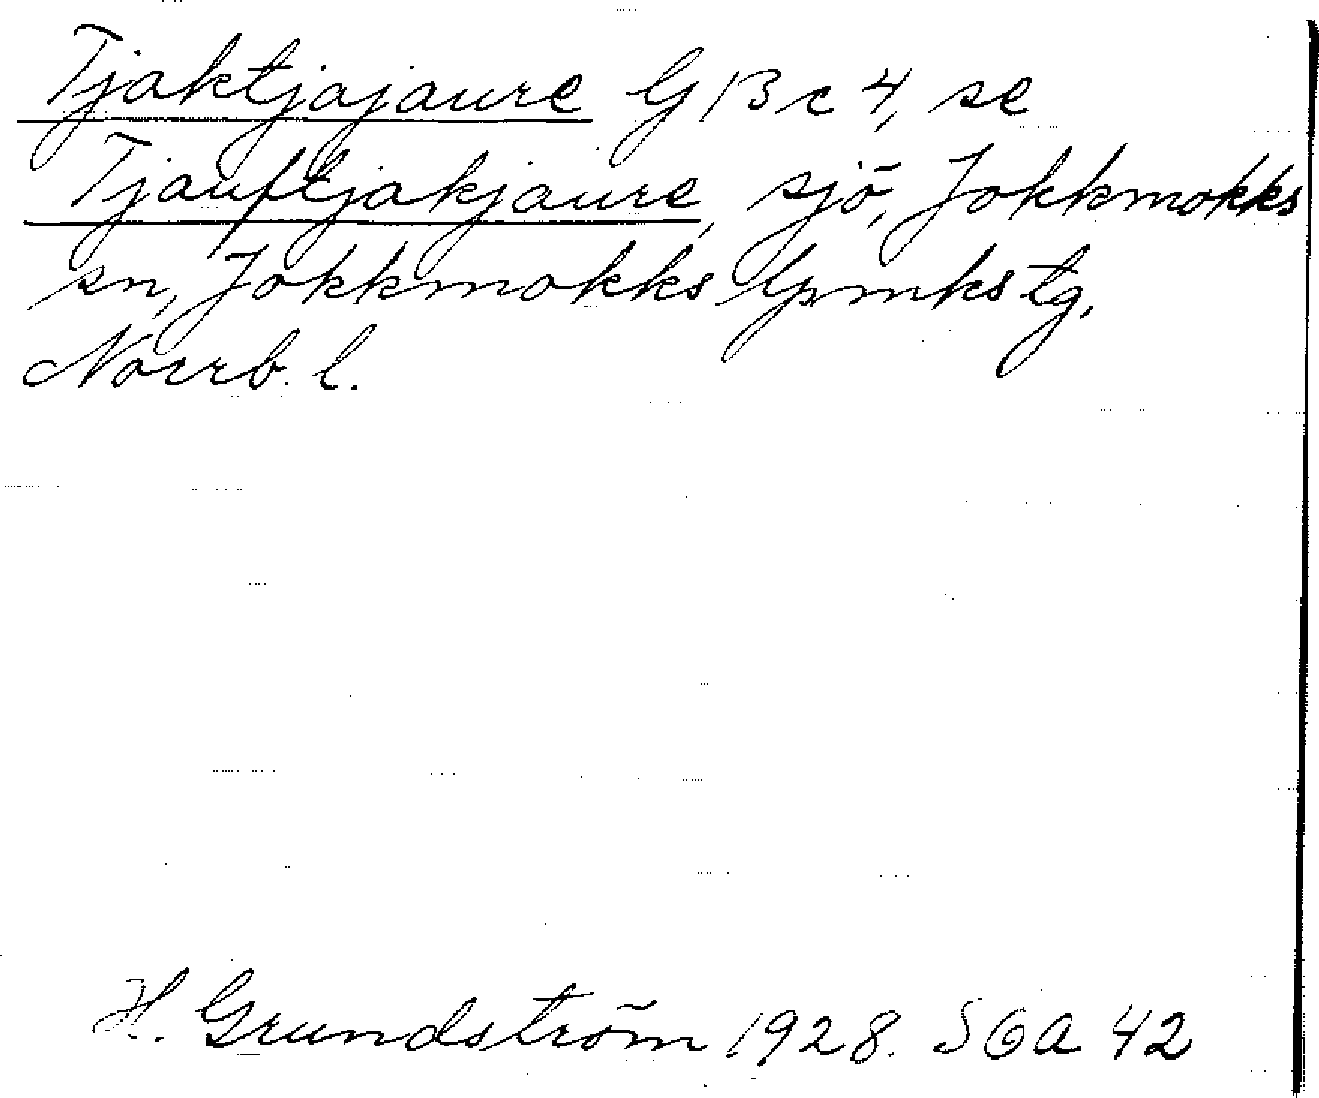 Tjaktjajaure G 13 c 4, se
Tjauftjakjaure, sjö, Jokkmokks
sn, Jokkmokks lpmks tg,
Norrb. l.
H. Grundström 1928. SOA 42